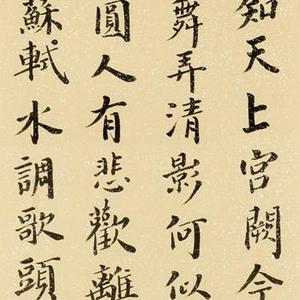 知天上宮闕今
舞弄清影何似
圓人有悲歡離
蘇軾水調歌頭